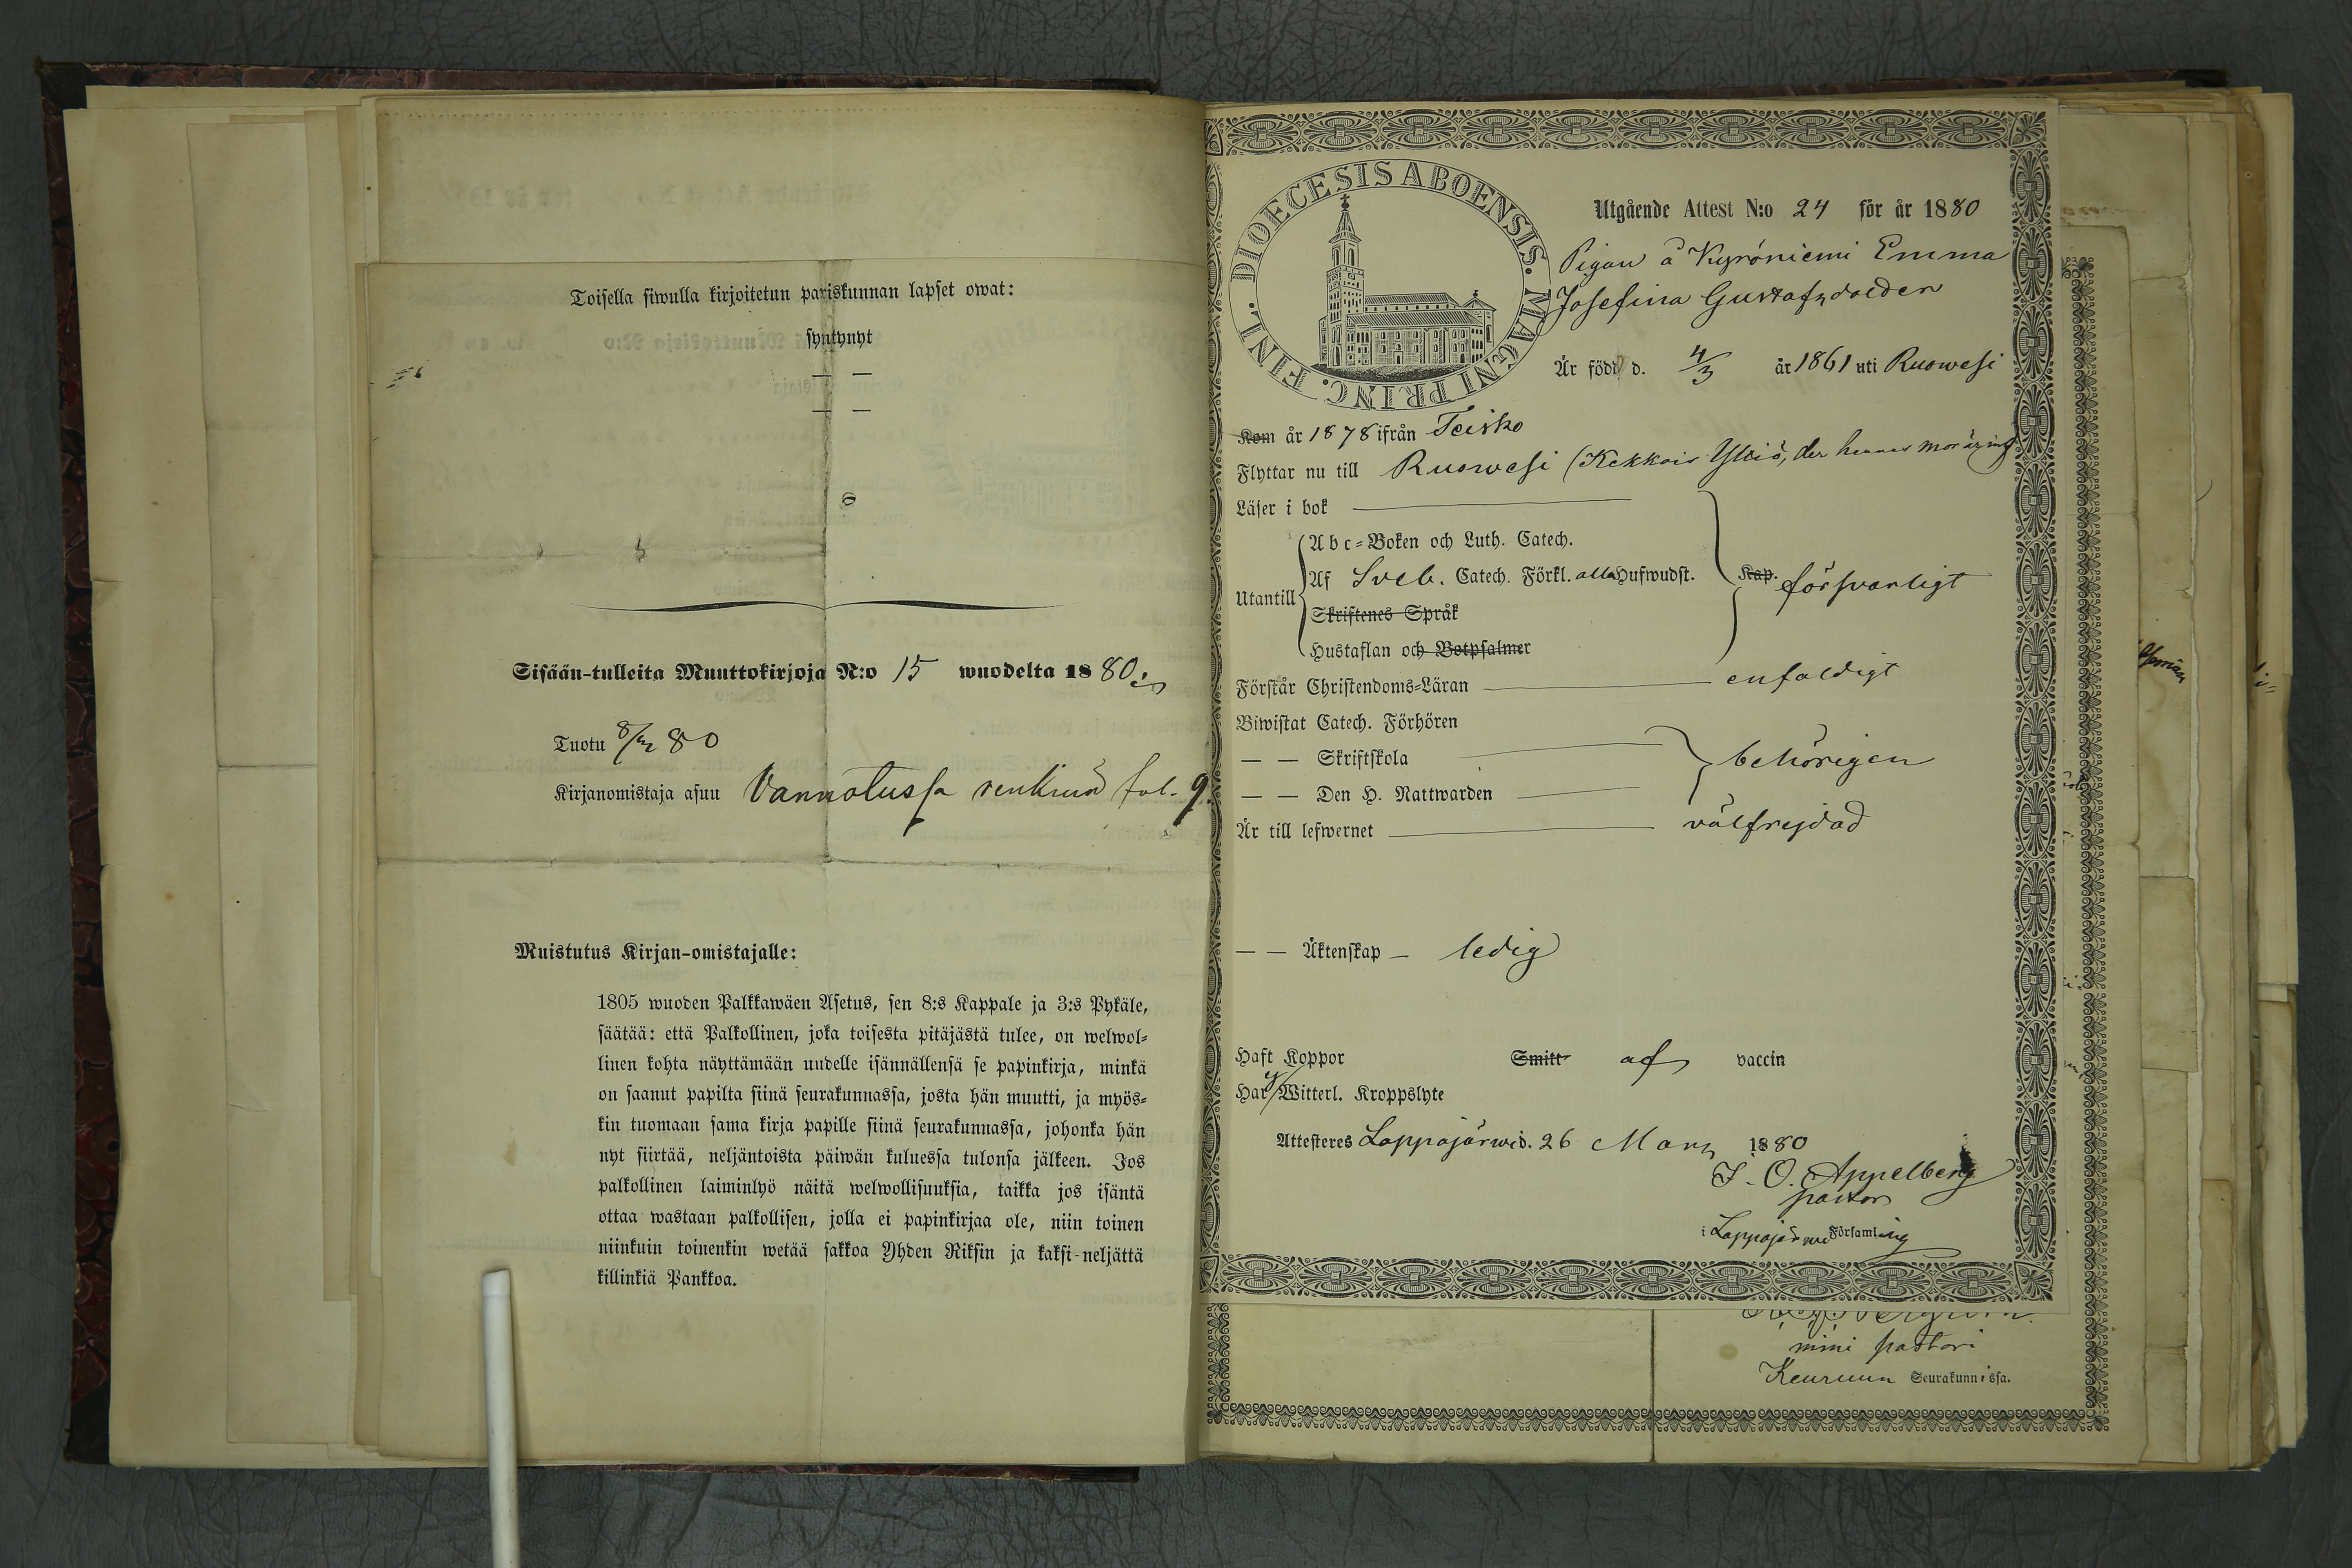 Toisella siwulla kirjoitetun pariskunnan lapset owat:
syntynyt
— —
— —
Sisään-tulleita Muuttokirjoja N:o 15 wuodelta 1880
Tuotu 80
Kirjanomistaja asuu Vannotussa renkinä fol. 9.
Muistutus Kirjan-omistajalle:
1805 wuoden Palkkawäen Asetus, sen 8:s Kappale ja 3:s Pykäle,
säätää: että Palkollinen, joka toisesta pitäjästä tulee, on welwol-
linen kohta näyttämään uudelle isännällensä se papinkirja, minkä
on saanut papilta siinä seurakunnassa, josta hän muutti, ja myös-
kin tuomaan sama kirja papille siinä seurakunnassa, johonka hän
nyt siirtää, neljäntoista päiwän kuluessa tulonsa jälkeen. Jos
palkollinen laiminlyö näitä welwollisuuksia, taikka jos isäntä
ottaa wastaan palkollisen, jolla ei papinkirjaa ole, niin toinen
niinkuin toinenkin wetää sakkoa Yhden Riksin ja kaksi-neljättä
killinkiä Pankkoa.
DIOECESIS ABOENSIS. MAGNI PRINC. FINL.
Utgående Attest N:o 24 för år 1880
Pigan å Kyröniemi Emma
Josefina Gustafsdotter
Är född d. 4/3 år 1861 uti Ruowesi
Kom år 1878 ifrån Teisko
Flyttar nu till Ruowesi (Kekkois Yliö, der hennes mor är
Läser i bok
Abc-Boken och Luth. Catech.
Utantill Af Sveb. Catech. Förkl. alla Hufwudst. Kap. försvarligt
Skriftenes Språk
Hustaflan och Botpsalmer
Förstår Christendoms-Läran enfaldigt
Biwistat Catech. Förhören
— — Skriftskola behörigen
— — Den H. Nattwarden
Är till lefwernet välfrejdad
— — Äktenskap — ledig
Haft Koppor Smitt af vaccin
Har ej Witterl. Kroppslyte
Attesteres Lappajärwi d. 26 Mars 1880
J. O. Appelberg
pastor
i Lappajärwi Församling
nimi pastori
Keuruun Seurakunnissa.